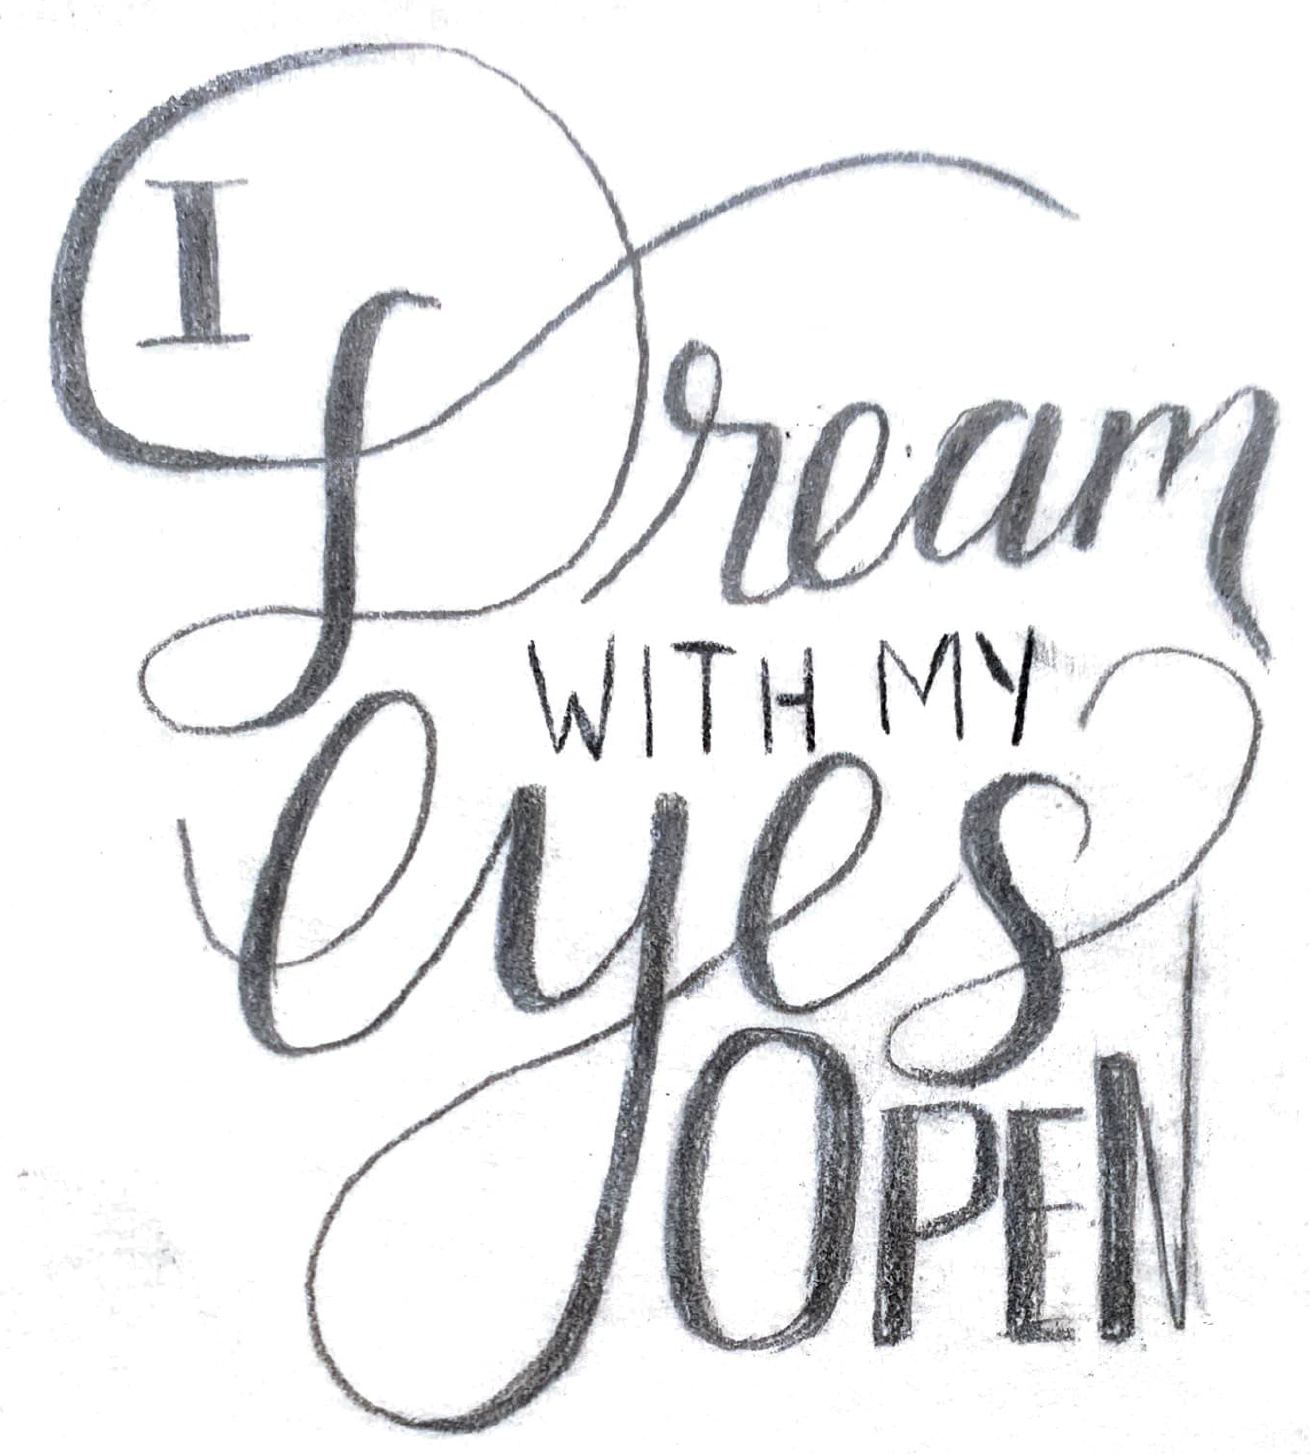 I
Dream
WITH MY
eyes
OPEN